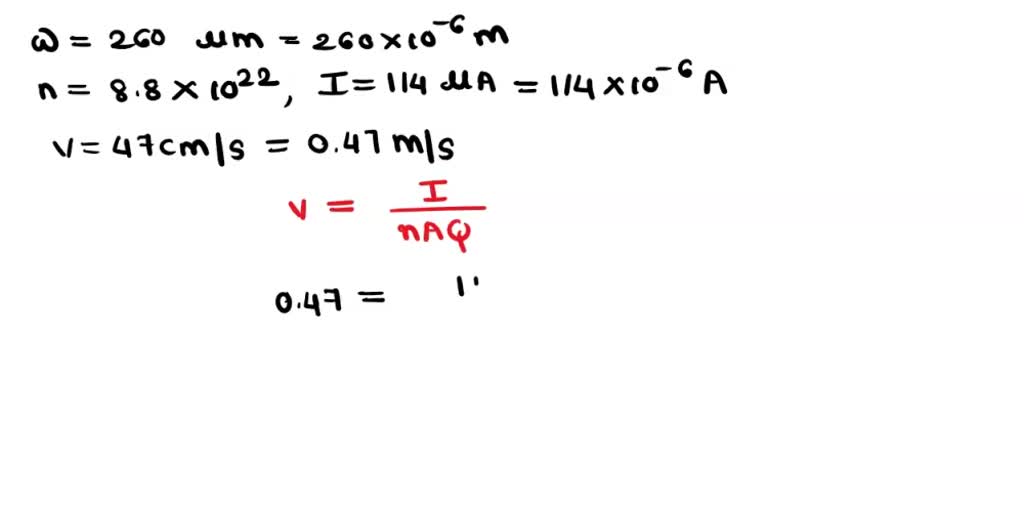 ω = 260 μm = 260×10⁻⁶ m
n = 8.8 × 10²², I = 114 μA = 114×10⁻⁶ A
v = 47cm/s = 0.47 m/s
v = I/nAQ
0.47 = 11